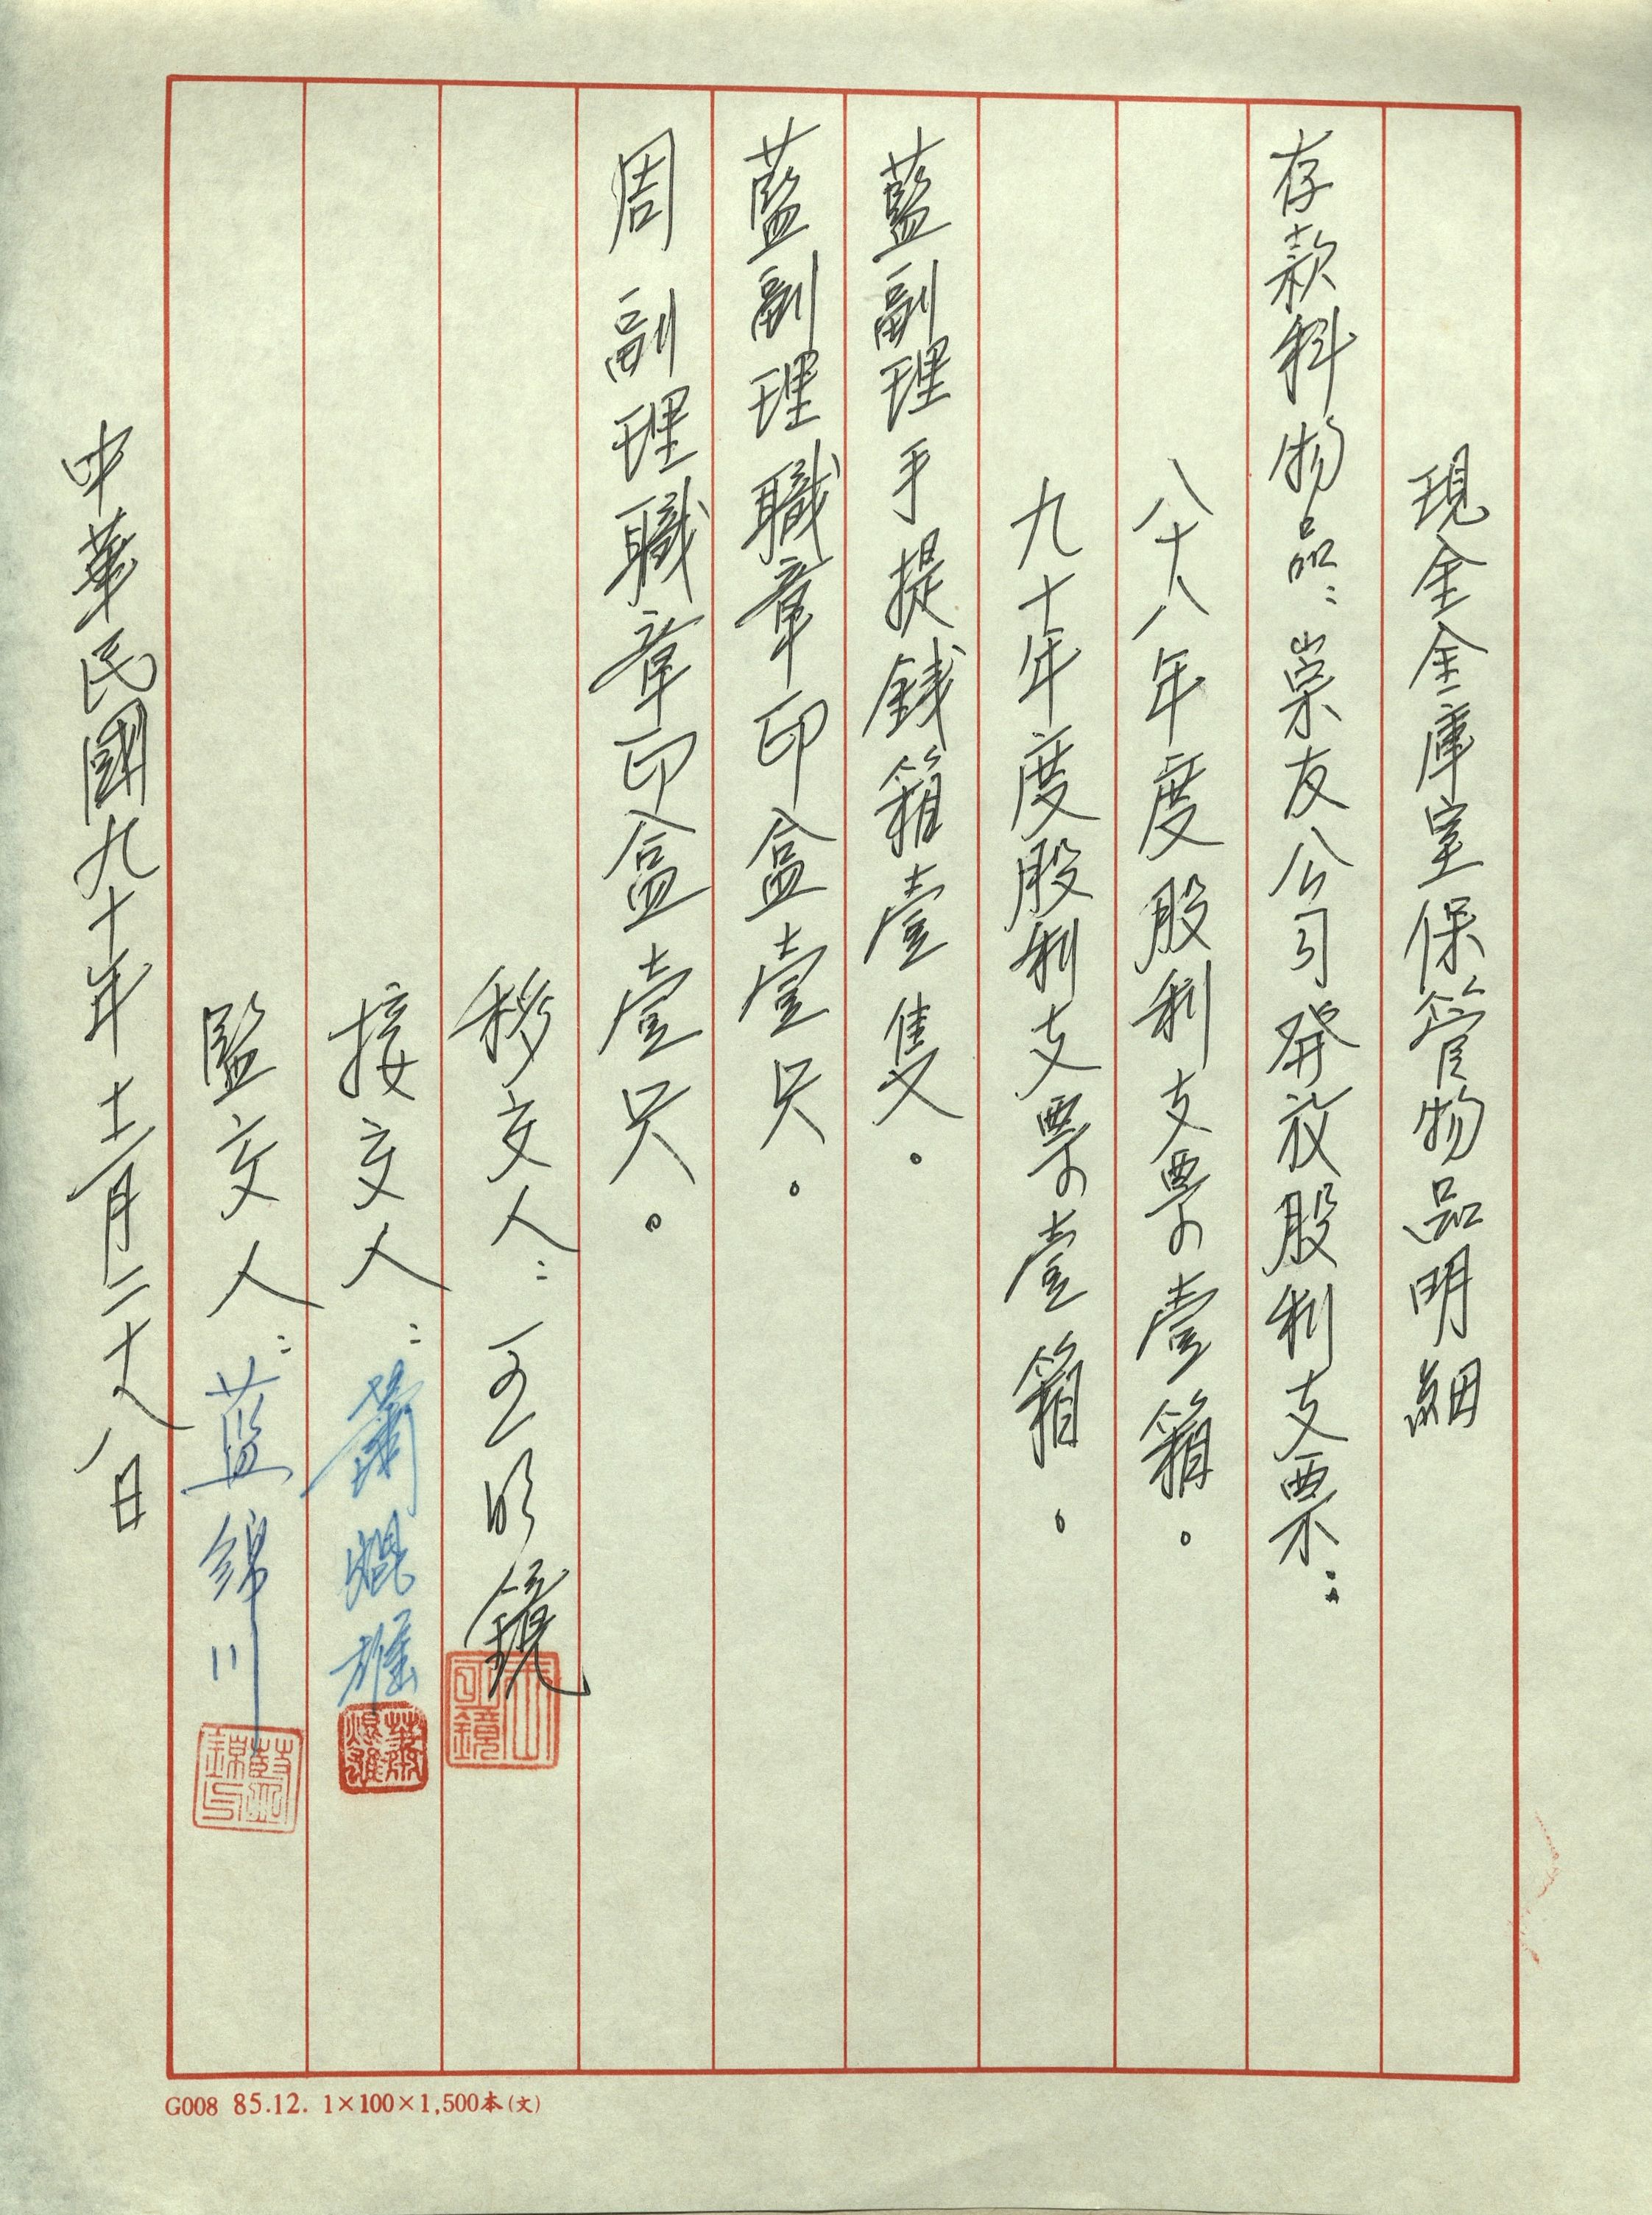 現金金庫室保管物品明細
存款科物品：崇友公司發放股利支票：
八十八年度股利支票壹箱。
九十年度股利支票壹箱。
藍副理手提錢箱壹隻。
藍副理職章印盒壹只。
周副理職章印盒壹只。
移交人：王明鏡
接交人：蕭焜雄
監交人：藍錦川
中華民國九十年十二月二十八日
G008 85.12. 1×100×1,500本(文)